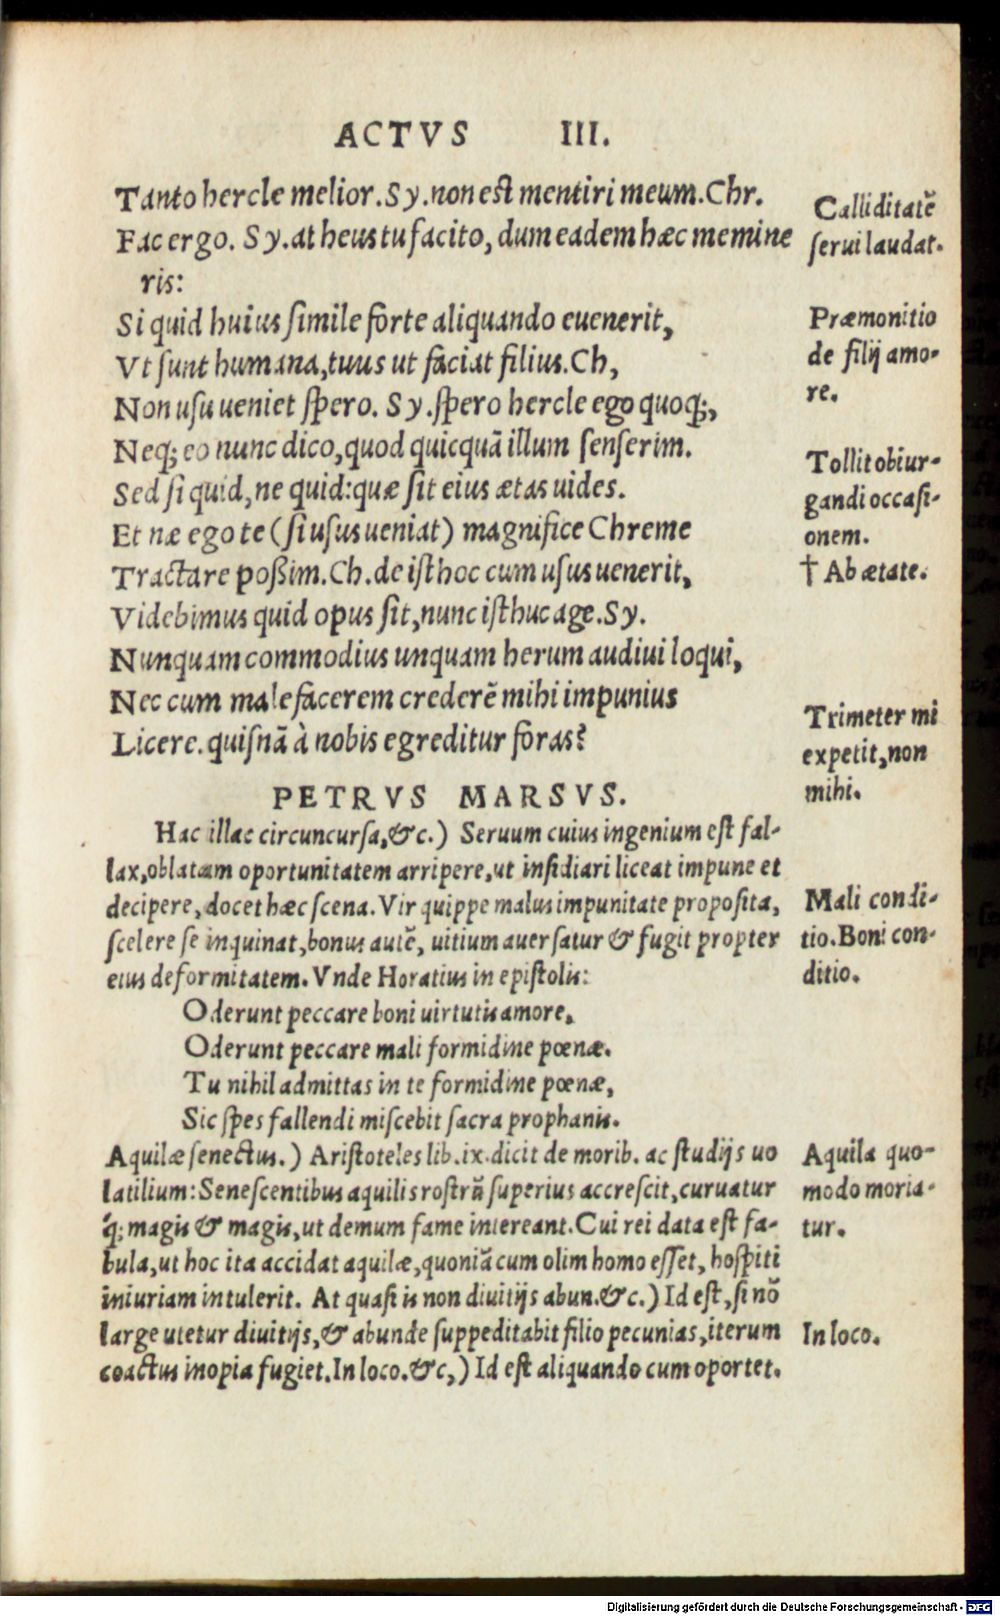 ACTVS III.
Tanto hercle melior. Sy. non est mentiri meum. Chr.
Fac ergo. Sy. at heus tu facito, dum eadem hæc memine
ris:
Si quid huius simile forte aliquando euenerit,
Vt sunt humana, tuus ut faciat filius. Ch,
Non usu ueniet spero. Sy. spero hercle ego quoq;,
Neq; eo nunc dico, quod quicquã illum senserim.
Sed si quid, ne quid: quæ sit eius ætas uides.
Et næ ego te (si usus ueniat) magnifice Chreme
Tractare poßim. Ch. de isthoc cum usus uenerit,
Videbimus quid opus sit, nunc isthuc age. Sy.
Nunquam commodius unquam herum audiui loqui,
Nec cum malefacerem crederẽ mihi impunius
Licere. quisnã à nobis egreditur foras?
Calliditatẽ
serui laudat.
Præmonitio
de filij amo-
re.
Tollit obiur-
gandi occasi-
onem.
† Ab ætate.
Trimeter mi
expetit, non
mihi.
PETRVS MARSVS.
Hac illac circuncursa, &c.) Seruum cuius ingenium est fal-
lax, oblatam oportunitatem arripere, ut insidiari liceat impune et
decipere, docet hæc scena. Vir quippe malus impunitate proposita,
scelere se inquinat, bonus autẽ, uitium auersatur & fugit propter
eius deformitatem. Vnde Horatius in epistolis:
Oderunt peccare boni uirtutis amore,
Oderunt peccare mali formidine pœnæ.
Tu nihil admittas in te formidine pœnæ,
Sic spes fallendi miscebit sacra prophanis.
Aquilæ senectus.) Aristoteles lib. ix. dicit de morib. ac studijs uo
latilium: Senescentibus aquilis rostrũ superius accrescit, curuatur
q́; magis & magis, ut demum fame intereant. Cui rei data est fa-
bula, ut hoc ita accidat aquilæ, quoniã cum olim homo esset, hospiti
iniuriam intulerit. At quasi is non diuitijs abun. &c.) Id est, si nõ
large utetur diuitijs, & abunde suppeditabit filio pecunias, iterum
coactus inopia fugiet. In loco. &c,) Id est aliquando cum oportet.
Mali condi-
tio. Boni con-
ditio.
Aquila quo-
modo moria-
tur.
In loco.
Digitalisierung gefördert durch die Deutsche Forschungsgemeinschaft - DFG